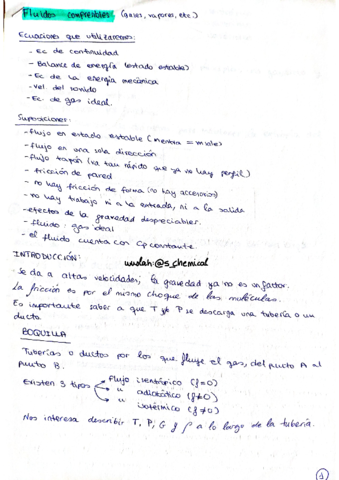 Fluidos compresibles (gases, vapores, etc.)
Ecuaciones que utilizaremos:
- Ec de continuidad
- Balance de energía (estado estable)
- Ec de la energía mecánica
- Vel del sonido
- Ec. de gas ideal.
Suposiciones:
- flujo en estado estable (mentra = msale)
- flujo en una sola dirección
- flujo tapón (va tan rápido que ya no hay perfil)
- fricción de pared
- no hay fricción de forma (no hay accesorios)
- no hay trabajo ni a la entrada, ni a la salida
- efectos de la gravedad despreciables.
- fluido: gas ideal
- el fluido cuenta con Cp constante.
wuolah:@s_chemical
INTRODUCCIÓN:
- Se da a altas velocidades, la gravedad ya no es un factor.
La fricción es por el mismo choque de las moléculas.
Es importante saber a que T y P se descarga una tubería o un
ducto.
BOQUILLA
Tuberías o ductos por los que fluye el gas, del punto A al
punto B.
Existen 3 tipos
Flujo isentrópico (f=0)
" adiabático (f≠0)
" isotérmico (f≠0)
Nos interesa describir T, P, G y ρ a lo largo de la tubería.
①